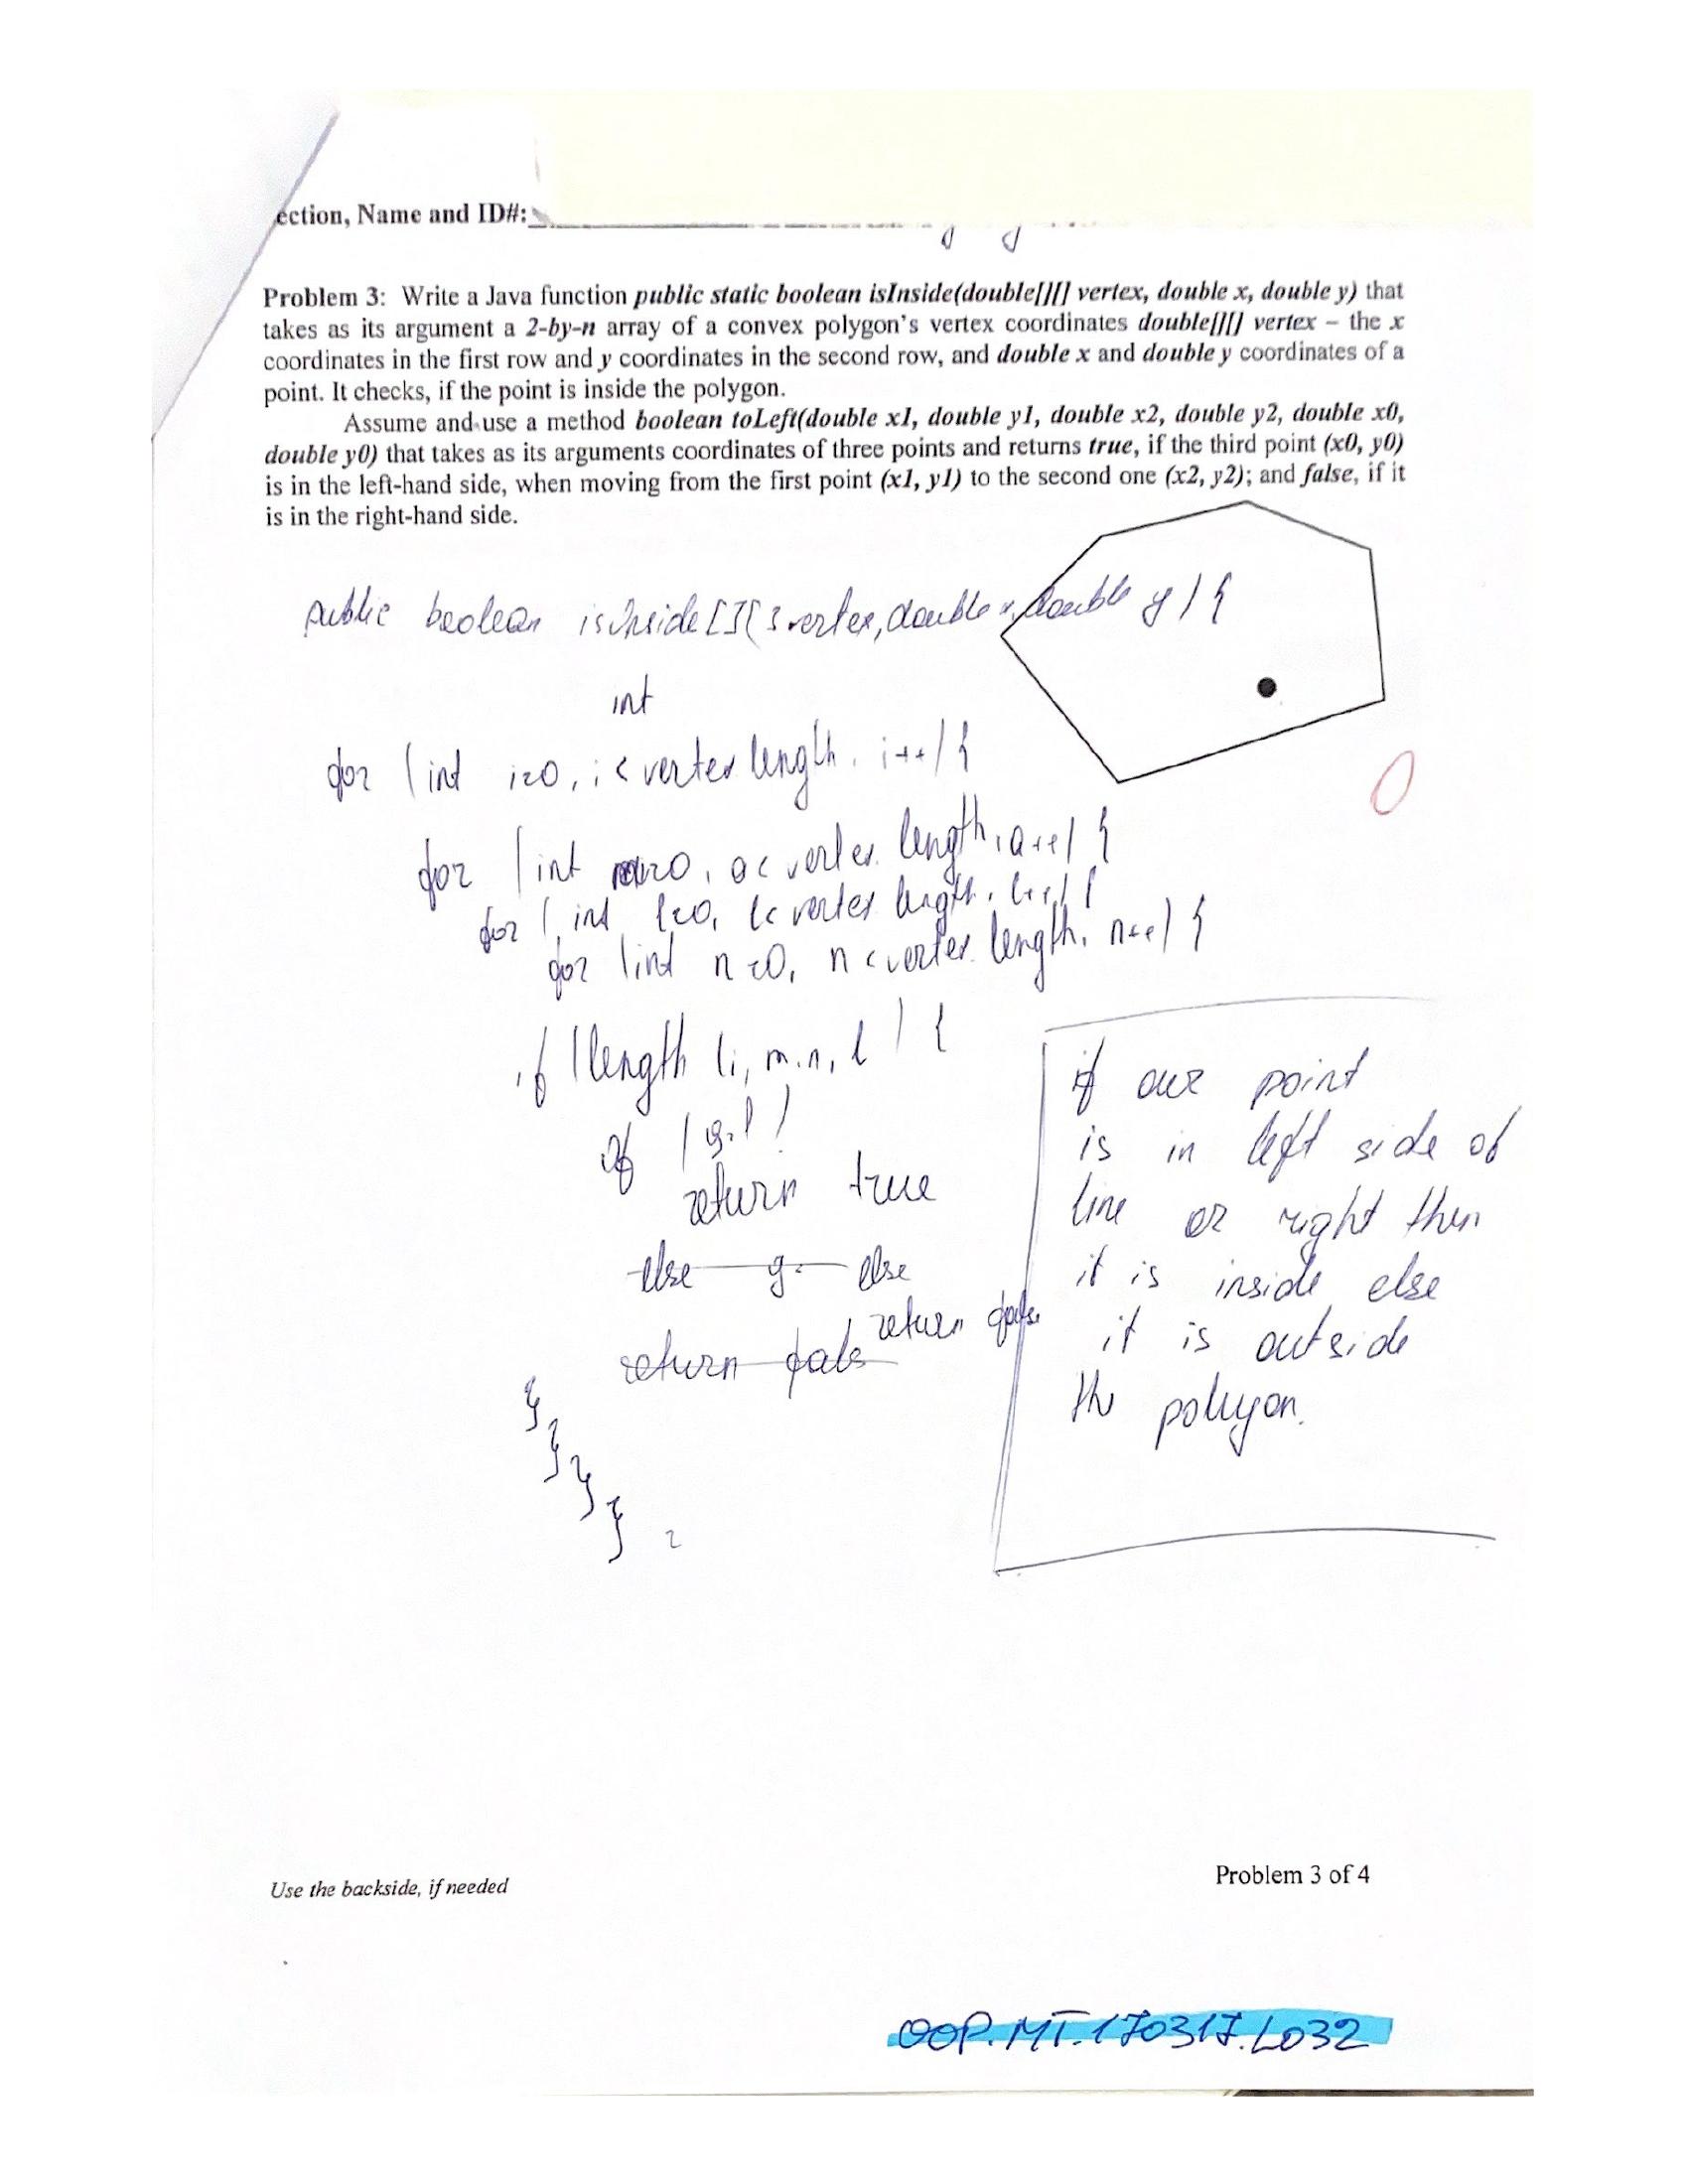 ection, Name and ID#:
Problem 3: Write a Java function public static boolean isInside(double[][] vertex, double x, double y) that
takes as its argument a 2-by-n array of a convex polygon's vertex coordinates double[][] vertex – the x
coordinates in the first row and y coordinates in the second row, and double x and double y coordinates of a
point. It checks, if the point is inside the polygon.
Assume and use a method boolean toLeft(double x1, double y1, double x2, double y2, double x0,
double y0) that takes as its arguments coordinates of three points and returns true, if the third point (x0, y0)
is in the left-hand side, when moving from the first point (x1, y1) to the second one (x2, y2); and false, if it
is in the right-hand side.
public beolean isInside [][] vertex, double x, double y ) {
int
for ( int i=0, i < vertex length. i++ ) {
0
for ( int =0, a < vertex. length, a++ ) {
for ( int l=0, l < vertex length, l++ ) {
for ( int n=0, n < vertex. length, n++ ) {
if ( length (i, m.n, l ) {
if ( )
return true
else g. else
return false
return fals
}
}
}
}
if our point
is in left side of
line or right then
it is inside else
it is outside
the polygon.
Use the backside, if needed
Problem 3 of 4
OOP.MT.170317.L032